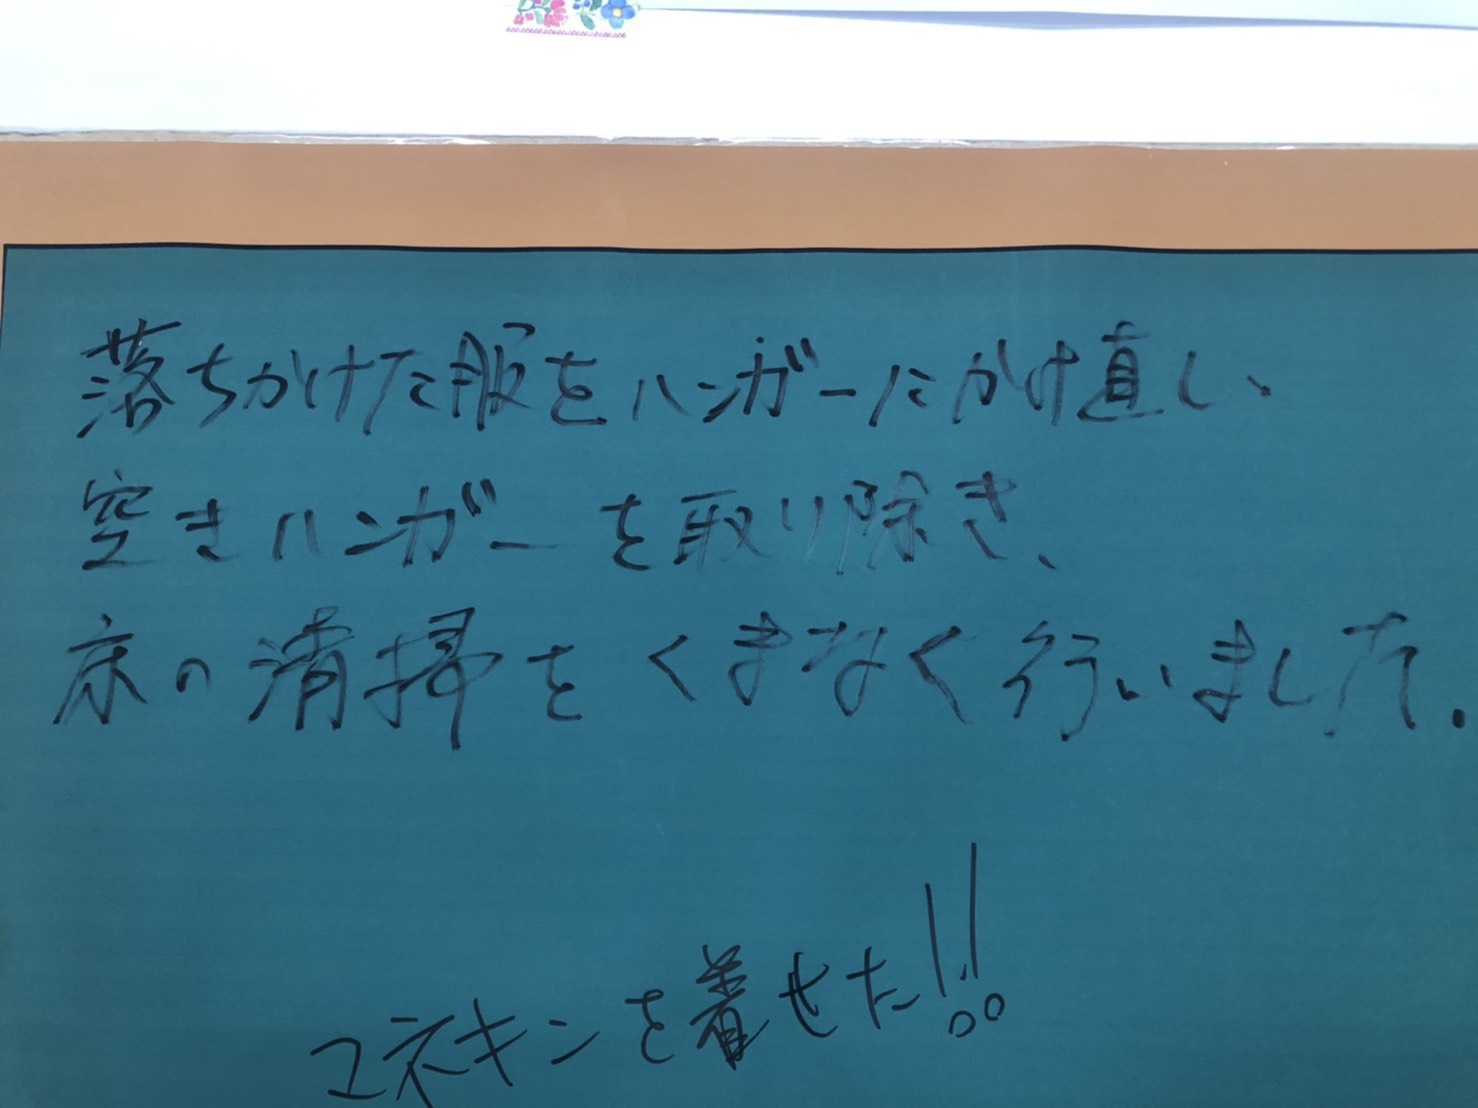 落ちかけた服をハンガーにかけ直し、
空きハンガーを取り除き、
床の清掃をくまなく行いました.
マネキンを着せた!!